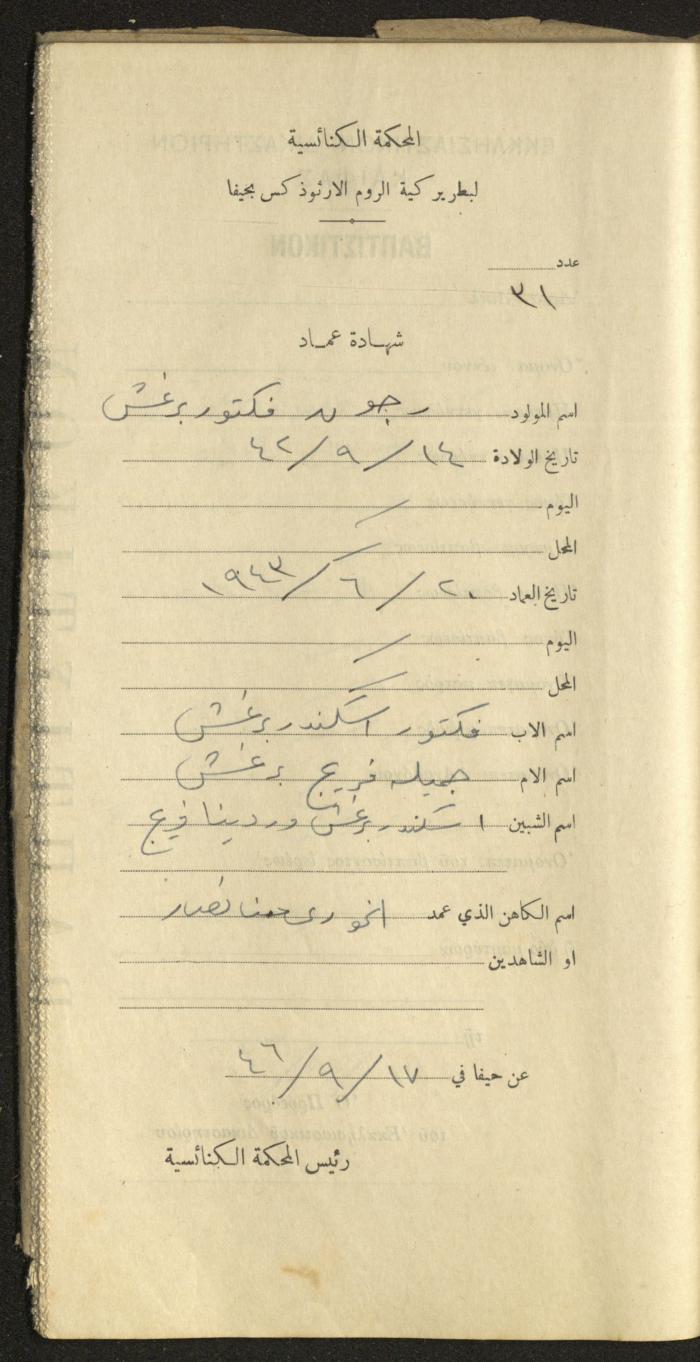 المحكمة الكنائسية
لبطريركية الروم الارثوذكس بحيفا
عدد
٣١
شهادة عماد
اسم المولود جون فكتور برغش
تاريخ الولادة ١٤/٩/٤٢
اليوم
المحل
تاريخ العماد ٢٠/٦/١٩٤٣
اليوم
المحل
اسم الاب فكتور اسكندر برغش
اسم الام جميله فريج برغش
اسم الشبين اسكندر برغش و دينا فريج
اسم الكاهن الذي عمد الخوري حنا نصار
او الشاهدين
عن حيفا في ١٧/٩/٤٦
رئيس المحكمة الكنائسية